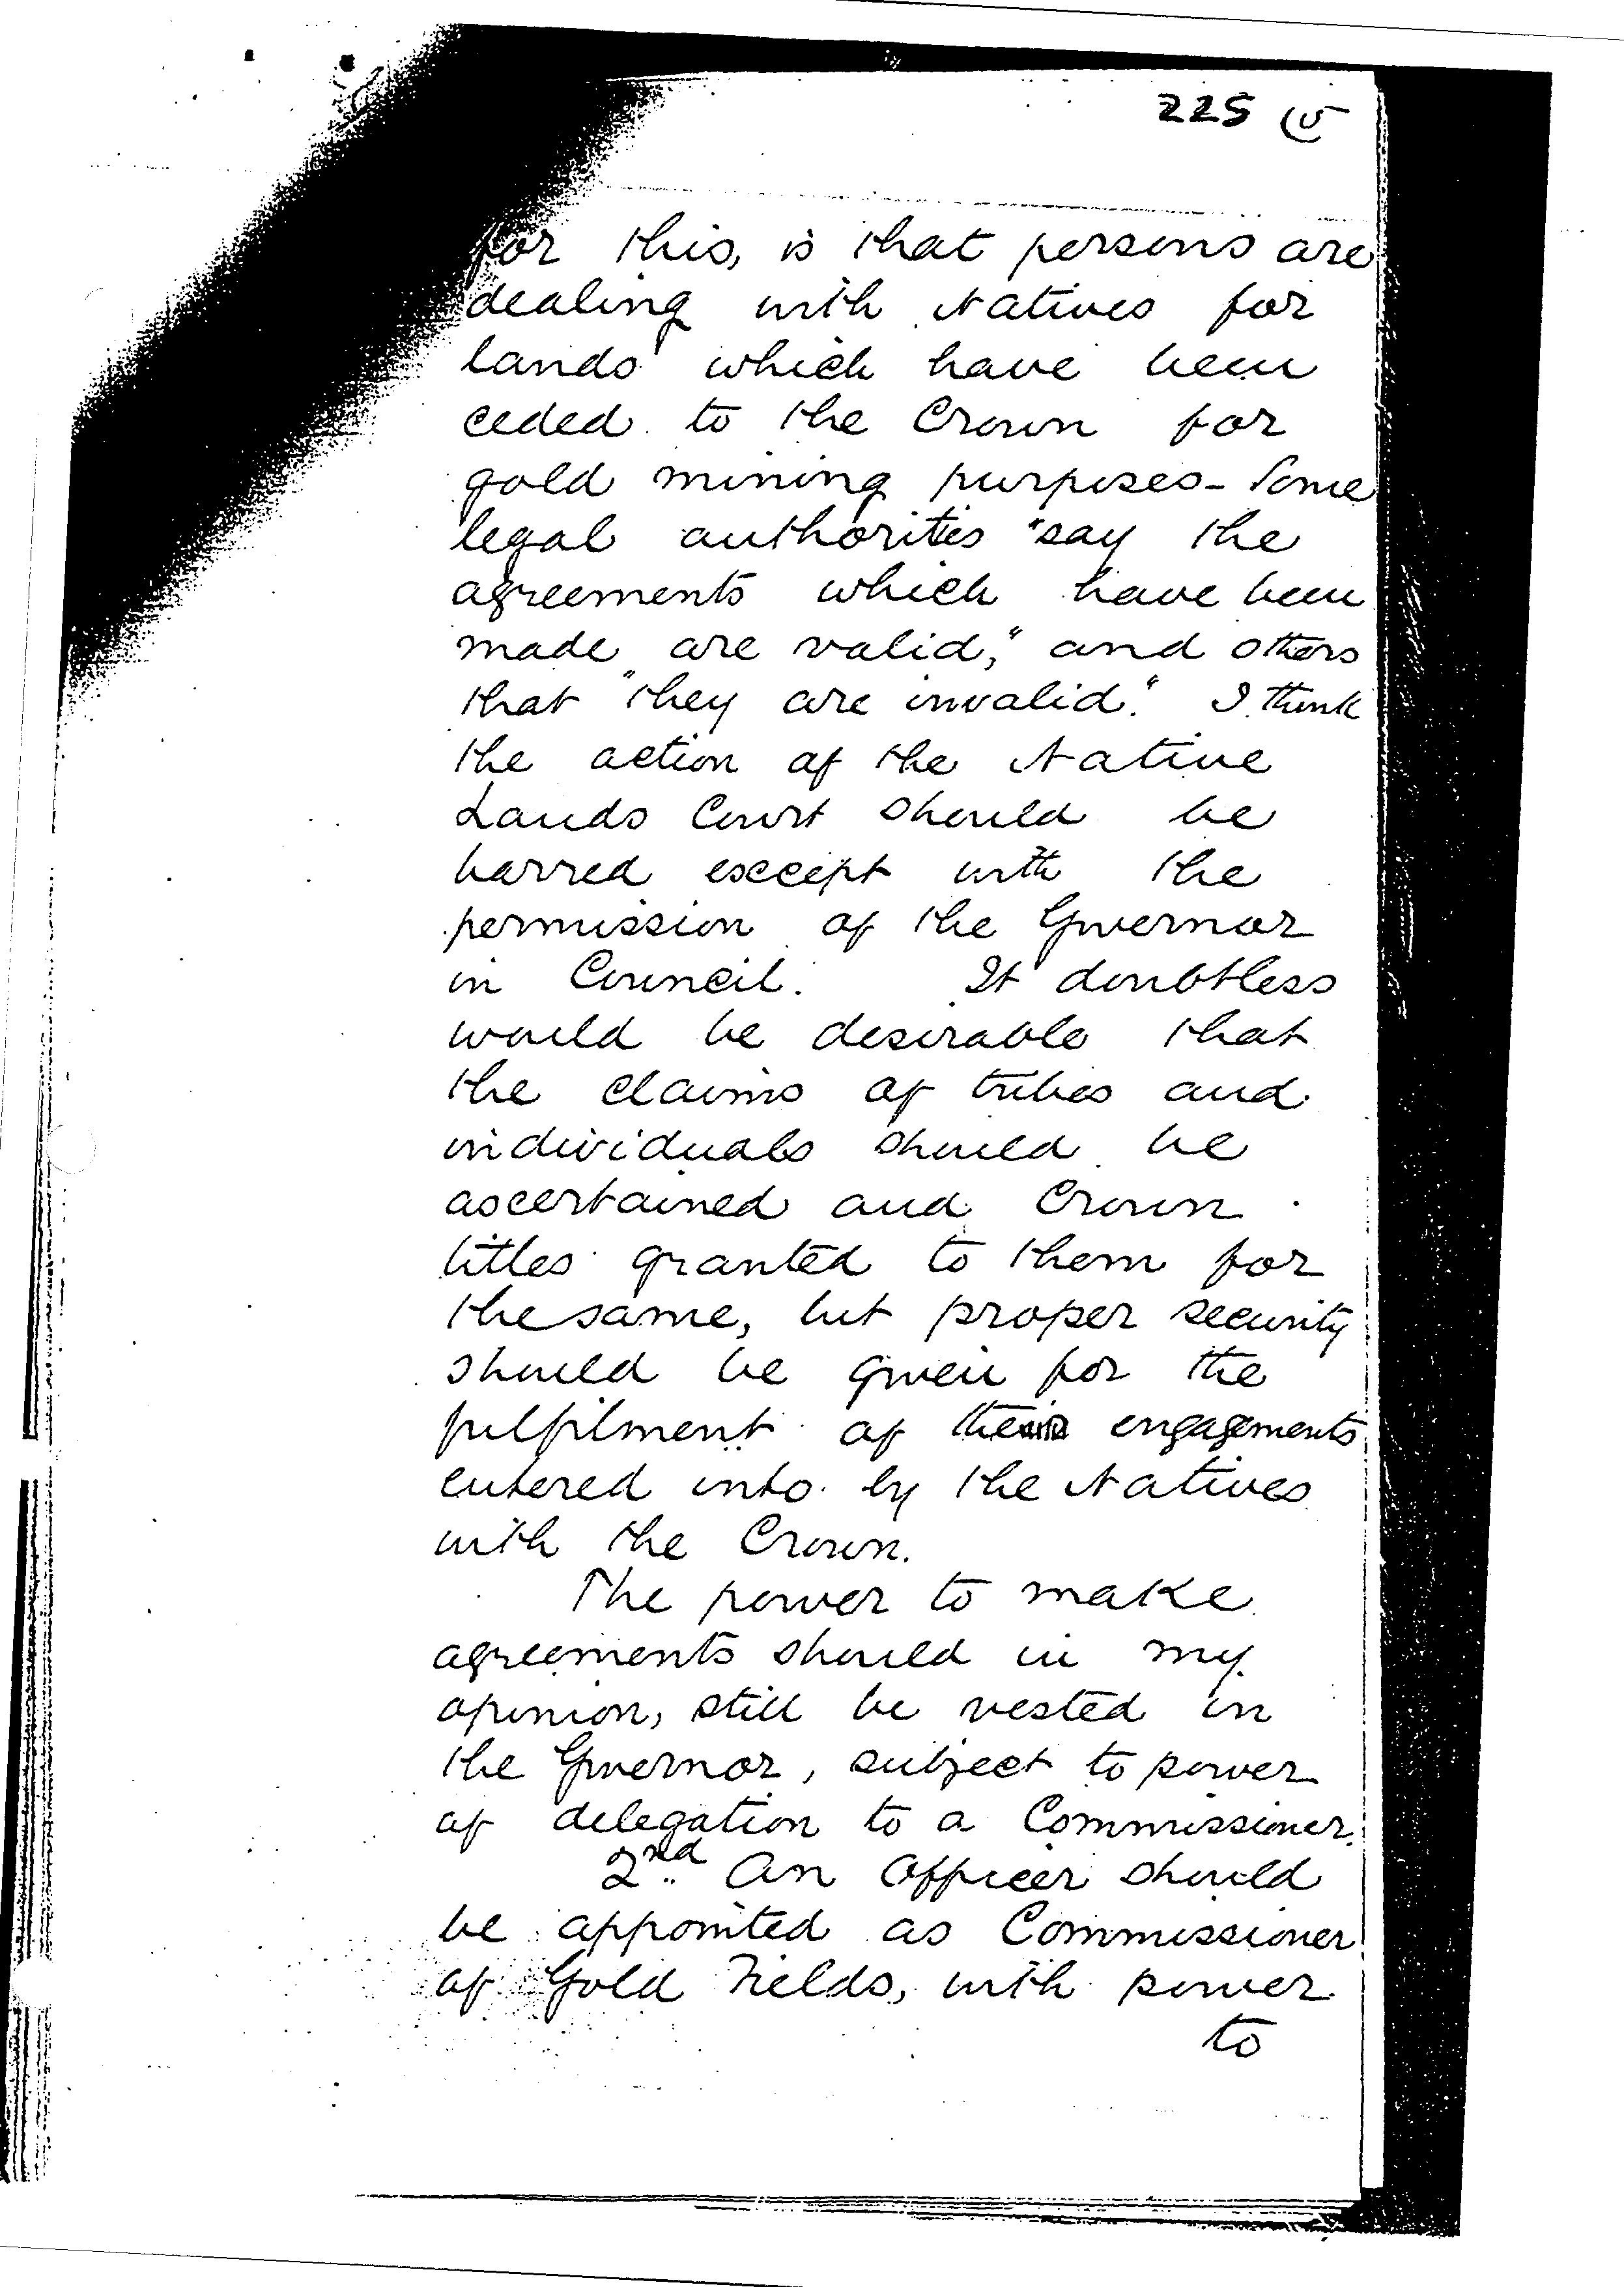 225 (5
for this, is that persons are
dealing with Natives for
lands which have been
ceded to the Crown for
gold mining purposes - Some
legal authorities "say the
agreements which have been
made are valid," and others
that "they are invalid." I think
the action of the Native
Lands Court should be
barred except with the
permission of the Governor
in Council. It doubtless
would be desirable that
the claims of tribes and
individuals should be
ascertained and Crown
titles granted to them for
the same, but proper security
should be given for the
fulfilment of the engagements
entered into by the Natives
with the Crown.
The power to make
agreements should in my
opinion, still be vested in
the Governor, subject to power
of delegation to a Commissioner.
2nd. An Officer should
be appointed as Commissioner
of Gold Fields, with power
to